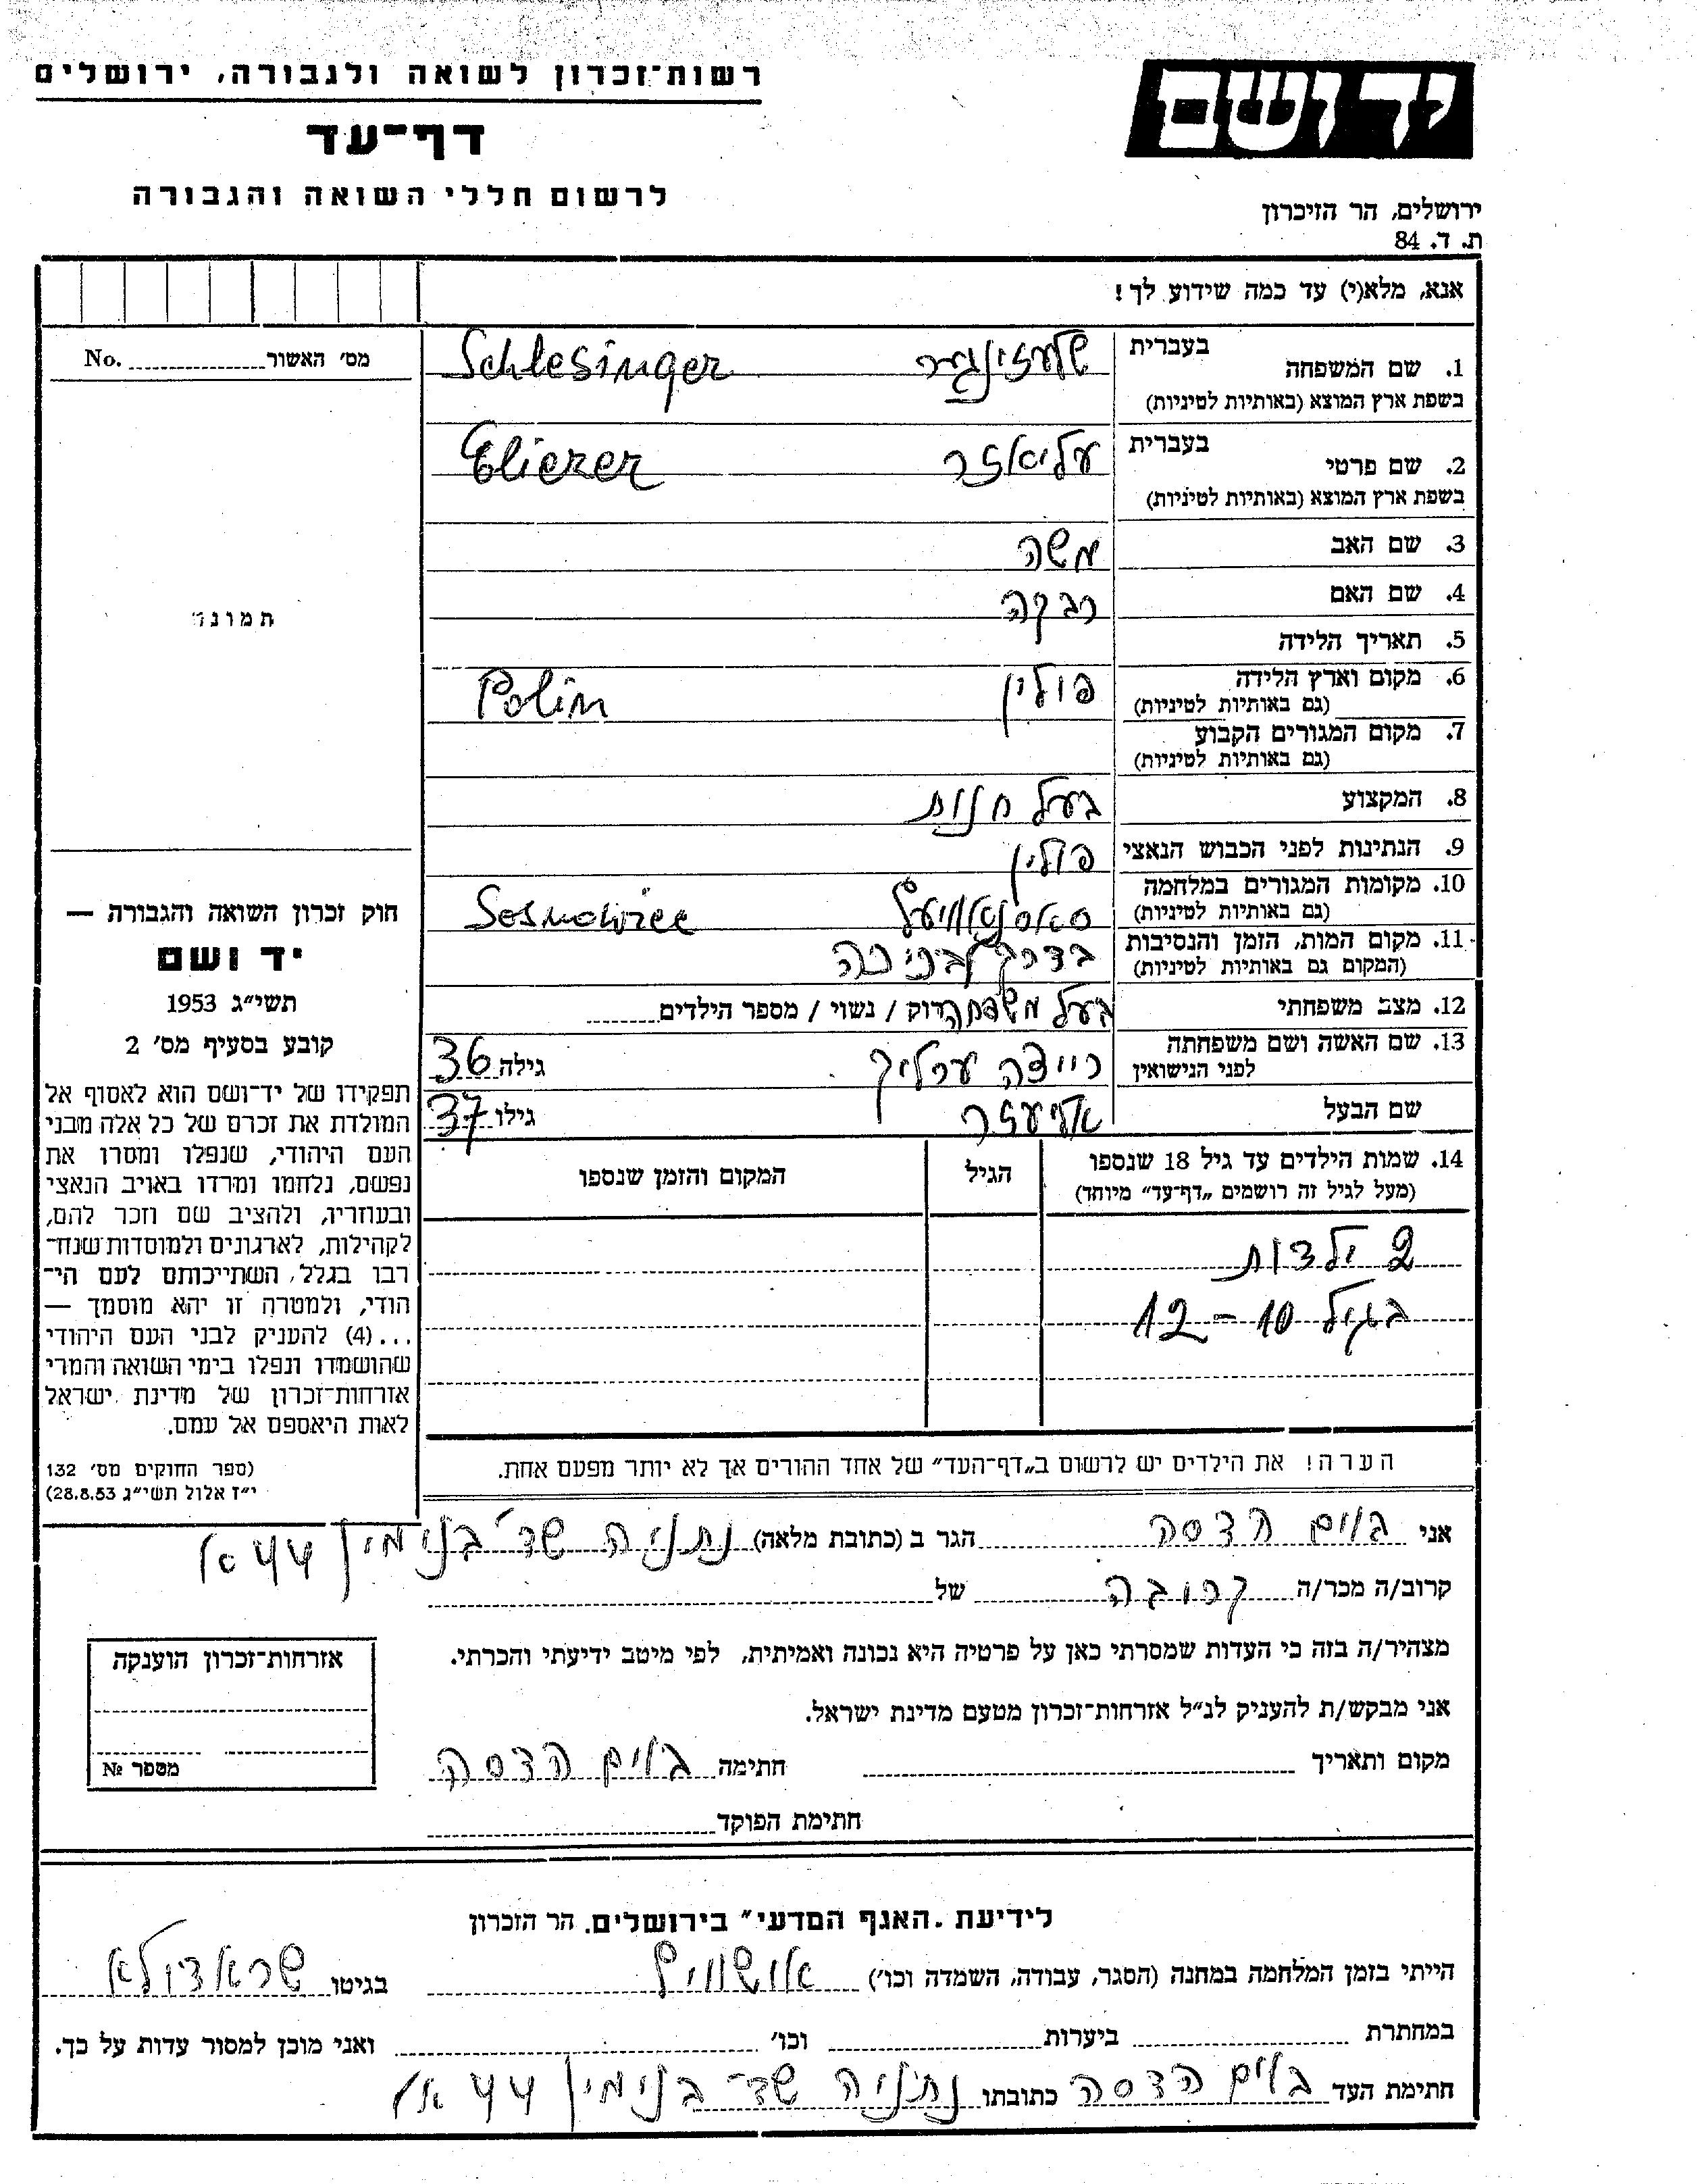 רשות־זכרון לשואה ולגבורה, ירושלים
דף־עד
לרשום חללי השואה והגבורה
יד ושם
ירושלים, הר הזיכרון
ת. ד. 84
אנא, מלא(י) עד כמה שידוע לך!
מס׳ האשור No.
1. שם המשפחה בעברית שלעזינגער Schlesinger
בשפת ארץ המוצא (באותיות לטיניות)
2. שם פרטי בעברית עליאזר Eliezer
בשפת ארץ המוצא (באותיות לטיניות)
3. שם האב משה
4. שם האם רבקה
5. תאריך הלידה
6. מקום וארץ הלידה פולין Polin
(גם באותיות לטיניות)
7. מקום המגורים הקבוע
(גם באותיות לטיניות)
8. המקצוע בעל חנות
9. הנתינות לפני הכבוש הנאצי פולין
10. מקומות המגורים במלחמה Sosnowiec
(גם באותיות לטיניות)
11. מקום המות, הזמן והנסיבות בדרך
(המקום גם באותיות לטיניות)
12. מצב משפחתי בעל משפחה רווק / נשוי / מספר הילדים
13. שם האשה ושם משפחתה רייצה ערליך גילה 36
לפני הנישואין
שם הבעל אליעזר גילו 37
14. שמות הילדים עד גיל 18 שנספו הגיל המקום והזמן שנספו
(מעל לגיל זה רושמים „דף־עד״ מיוחד)
2 ילדות
בגיל 10 – 12
הערה! את הילדים יש לרשום ב„דף־העד״ של אחד ההורים אך לא יותר מפעם אחת.
תמונה
חוק זכרון השואה והגבורה —
יד ושם
תשי״ג 1953
קובע בסעיף מס׳ 2
תפקידו של יד־ושם הוא לאסוף אל
המולדת את זכרם של כל אלה מבני
העם היהודי, שנפלו ומסרו את
נפשם, נלחמו ומרדו באויב הנאצי
ובעוזריו, ולהציב שם וזכר להם,
לקהילות, לארגונים ולמוסדות שנח־
רבו בגלל השתייכותם לעם הי־
הודי, ולמטרה זו יהא מוסמך —
...(4) להעניק לבני העם היהודי
שהושמדו ונפלו בימי השואה והמרי
אזרחות־זכרון של מדינת ישראל
לאות היאספם אל עמם.
(ספר החוקים מס׳ 132
י״ז אלול תשי״ג 28.8.53)
אני בוים הדסה הגר ב (כתובת מלאה) נתניה שד׳ בנימין 44
קרוב/ה מכר/ה קרובה של
מצהיר/ה בזה כי העדות שמסרתי כאן על פרטיה היא נכונה ואמיתית, לפי מיטב ידיעתי והכרתי.
אני מבקש/ת להעניק לנ״ל אזרחות־זכרון מטעם מדינת ישראל.
מקום ותאריך חתימה בוים הדסה
חתימת הפוקד
אזרחות־זכרון הוענקה
מספר №
לידיעת „האגף המדעי״ בירושלים, הר הזכרון
הייתי בזמן המלחמה במחנה (הסגר, עבודה, השמדה וכו׳) אושוויץ בגיטו שראדולא
במחתרת ביערות וכו׳ ואני מוכן למסור עדות על כך.
חתימת העד בוים הדסה כתובתו נתניה שד׳ בנימין 44